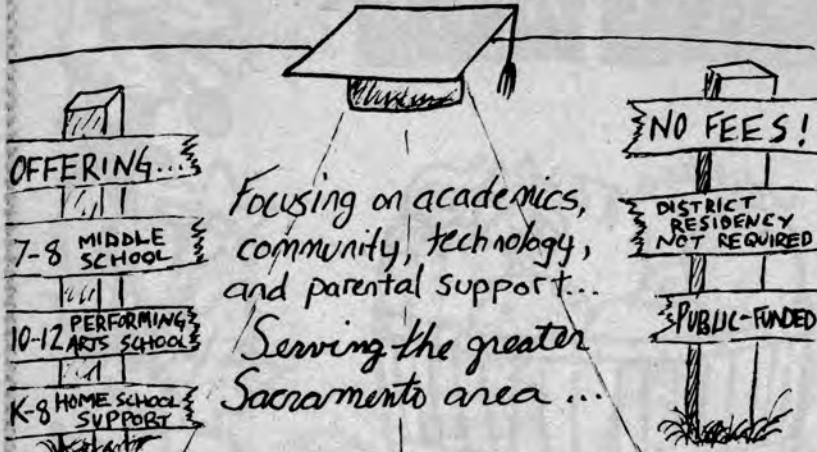 OFFERING...
7-8 MIDDLE
SCHOOL
10-12 PERFORMING
ARTS SCHOOL
K-8 HOME SCHOOL
SUPPORT
Focusing on academics,
community, technology,
and parental support...
Serving the greater
Sacramento area ...
NO FEES!
DISTRICT
RESIDENCY
NOT REQUIRED
PUBLIC-FUNDED